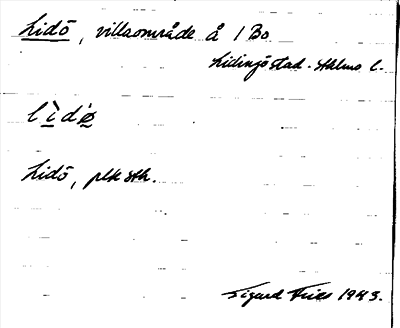 Lidö, villaområde å 1 Bo
Lidingö stad. Sthlms l.
lìdø
Lidö, plk sth.
Sigurd Fries 1943.